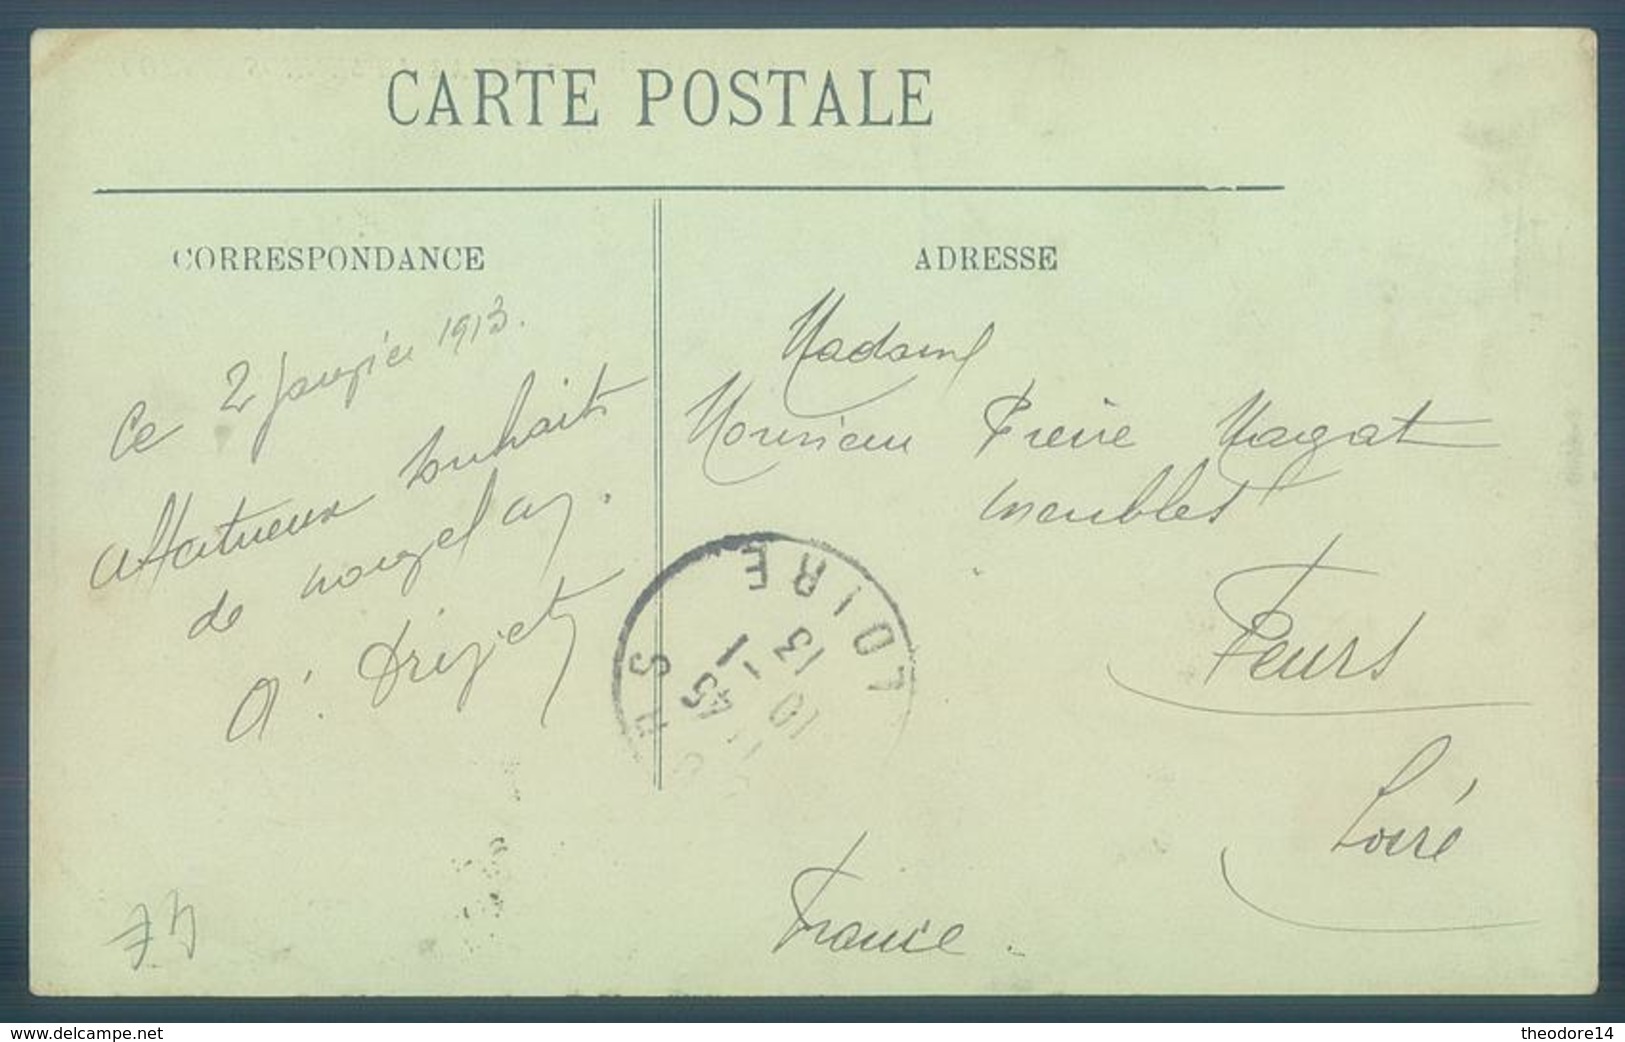 CARTE POSTALE
CORRESPONDANCE
Ce 2 Janvier 1913.
affectueux souhaits
de nouvel an.
A.
ADRESSE
Madame
Monsieur Pierre Magat
meubles
Feurs
Loire
France.
LOIRE
13
1
10
45
FEURS
www.delcampe.net
theodore14